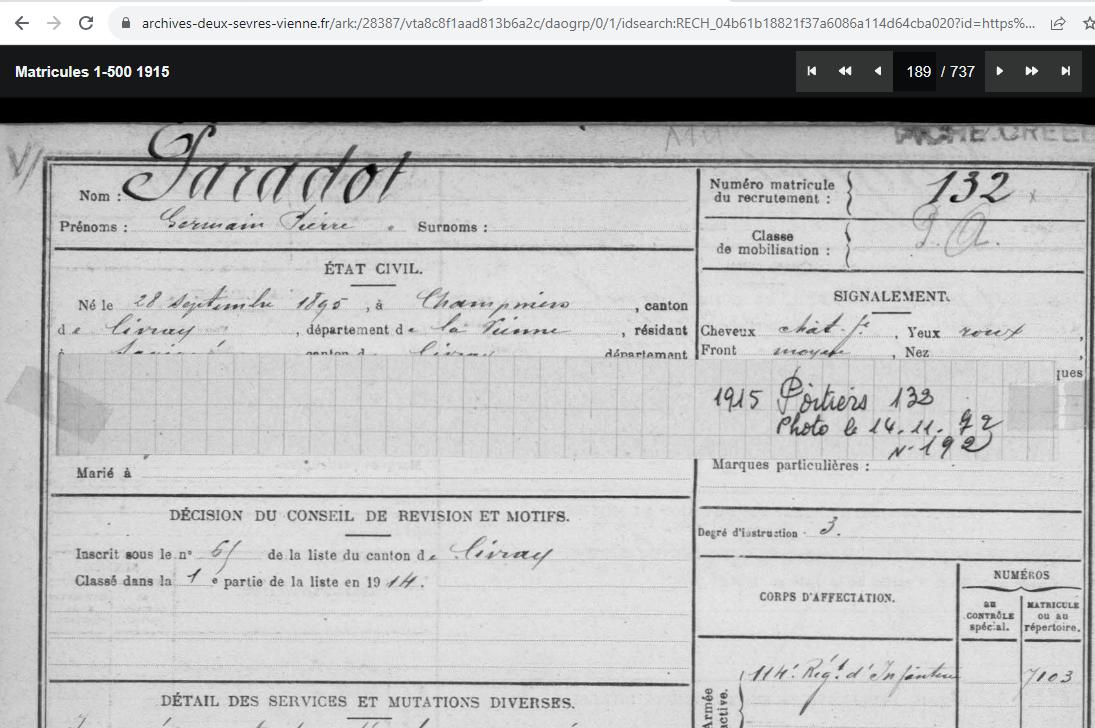 archives-deux-sevres-vienne.fr/ark:/28387/vta8c8f1aad813b6a2c/daogrp/0/1/idsearch:RECH_04b61b18821f37a6086a114d64cba020?id=https%...
Matricules 1-500 1915
189 / 737
FICHE CREEE
Nom : Paradot
Numéro matricule du recrutement : 132
Prénoms : Germain Pierre Surnoms :
Classe de mobilisation : P. A.
ÉTAT CIVIL.
Né le 28 septembre 1895, à Champniers, canton
de Civray, département de la Vienne, résidant
à canton de Civray département
SIGNALEMENT.
Cheveux chât. , Yeux roux ,
Front moyen , Nez ,
ques
1915 Poitiers 132
Photo le 14.11.92
N° 192
Marié à
Marques particulières :
DÉCISION DU CONSEIL DE REVISION ET MOTIFS.
Inscrit sous le n° de la liste du canton de Civray
Classé dans la 1e partie de la liste en 1914.
Degré d'instruction 3.
CORPS D'AFFECTATION.
NUMÉROS
au CONTRÔLE spécial.
MATRICULE ou au répertoire.
DÉTAIL DES SERVICES ET MUTATIONS DIVERSES.
Armée active.
114e Régt d'Infanterie 7103